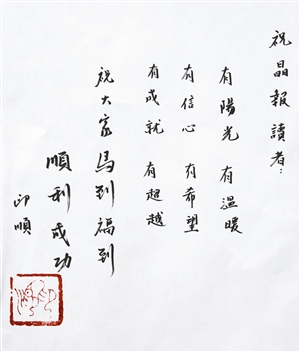 祝晶報讀者：
有陽光 有溫暖
有信心 有希望
有成就 有超越
祝大家馬到福到
順利成功
印順